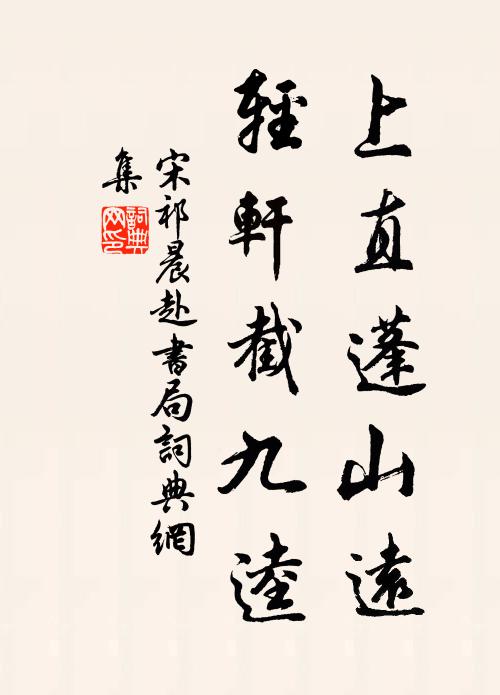 上直蓬山遠
輕軒截九逵
宋祁晨赴書局詞典網
集
詞典網印